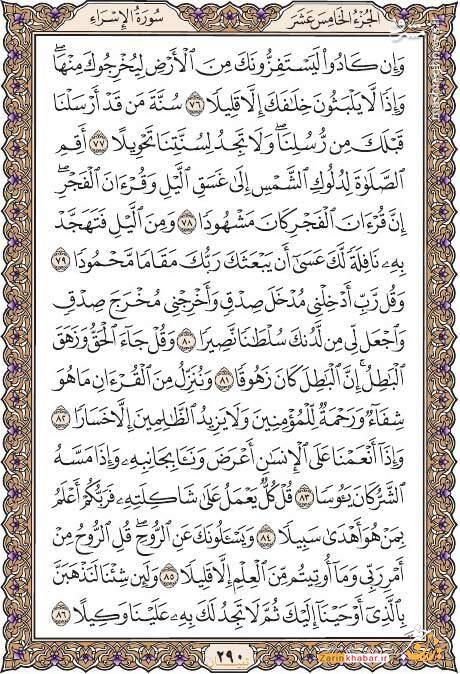 الجُزْءُ الخَامِسَ عَشَرَ
سُورَةُ الإِسْرَاءِ
وَإِن كَادُوا۟ لَيَسْتَفِزُّونَكَ مِنَ ٱلْأَرْضِ لِيُخْرِجُوكَ مِنْهَا ۖ
وَإِذًا لَّا يَلْبَثُونَ خِلَٰفَكَ إِلَّا قَلِيلًا ٧٦ سُنَّةَ مَن قَدْ أَرْسَلْنَا
قَبْلَكَ مِن رُّسُلِنَا ۖ وَلَا تَجِدُ لِسُنَّتِنَا تَحْوِيلًا ٧٧ أَقِمِ
ٱلصَّلَوٰةَ لِدُلُوكِ ٱلشَّمْسِ إِلَىٰ غَسَقِ ٱلَّيْلِ وَقُرْءَانَ ٱلْفَجْرِ ۖ
إِنَّ قُرْءَانَ ٱلْفَجْرِ كَانَ مَشْهُودًا ٧٨ وَمِنَ ٱلَّيْلِ فَتَهَجَّدْ
بِهِۦ نَافِلَةً لَّكَ عَسَىٰٓ أَن يَبْعَثَكَ رَبُّكَ مَقَامًا مَّحْمُودًا ٧٩
وَقُل رَّبِّ أَدْخِلْنِى مُدْخَلَ صِدْقٍ وَأَخْرِجْنِى مُخْرَجَ صِدْقٍ
وَٱجْعَل لِّى مِن لَّدُنكَ سُلْطَٰنًا نَّصِيرًا ٨٠ وَقُلْ جَآءَ ٱلْحَقُّ وَزَهَقَ
ٱلْبَٰطِلُ ۚ إِنَّ ٱلْبَٰطِلَ كَانَ زَهُوقًا ٨١ وَنُنَزِّلُ مِنَ ٱلْقُرْءَانِ مَا هُوَ
شِفَآءٌ وَرَحْمَةٌ لِّلْمُؤْمِنِينَ وَلَا يَزِيدُ ٱلظَّٰلِمِينَ إِلَّا خَسَارًا ٨٢
وَإِذَآ أَنْعَمْنَا عَلَى ٱلْإِنسَٰنِ أَعْرَضَ وَنَـَٔا بِجَانِبِهِۦ وَإِذَا مَسَّهُ
ٱلشَّرُّ كَانَ يَـُٔوسًا ٨٣ قُلْ كُلٌّ يَعْمَلُ عَلَىٰ شَاكِلَتِهِۦ فَرَبُّكُمْ أَعْلَمُ
بِمَنْ هُوَ أَهْدَىٰ سَبِيلًا ٨٤ وَيَسْـَٔلُونَكَ عَنِ ٱلرُّوحِ ۖ قُلِ ٱلرُّوحُ مِنْ
أَمْرِ رَبِّى وَمَآ أُوتِيتُم مِّنَ ٱلْعِلْمِ إِلَّا قَلِيلًا ٨٥ وَلَئِن شِئْنَا لَنَذْهَبَنَّ
بِٱلَّذِىٓ أَوْحَيْنَآ إِلَيْكَ ثُمَّ لَا تَجِدُ لَكَ بِهِۦ عَلَيْنَا وَكِيلًا ٨٦
٢٩٠
Zarinkhabar.ir